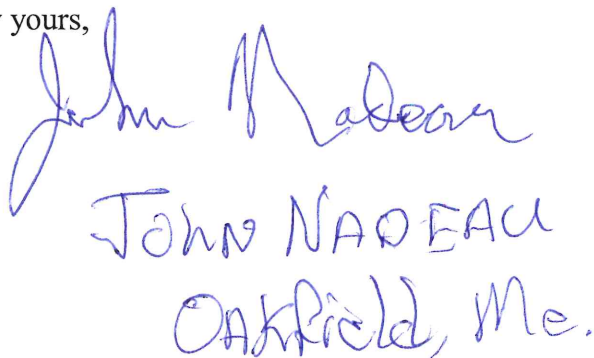 yours,
John Nadeau
JOHN NADEAU
OAKfield, Me.